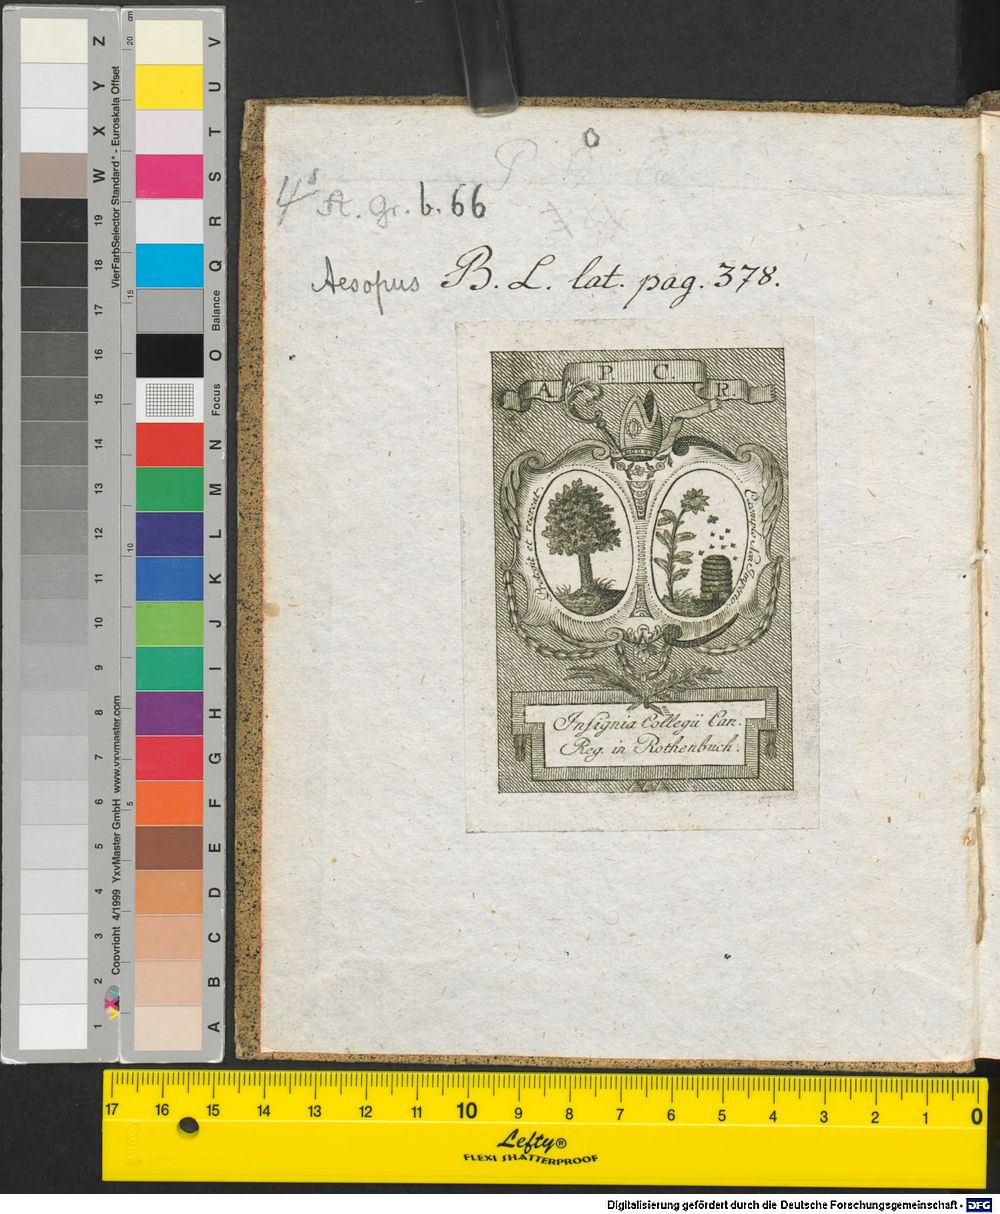 4° A. Gr. b. 66
Aesopus B. L. lat. pag. 378.
A. P. C. R.
Insignia Collegii Can.
Reg. in Rothenbuch.
Z Y X W 19 18 17 16 15 14 13 12 11 10 9 8 7 6 5 4 3 2 1
VierFarbSelector Standard* - Euroskala Offset
Copyright 4/1999 YxyMaster GmbH www.yxymaster.com
cm 20 15 10 5
V U T S R Q Balance O Focus N M L K J I H G F E D C B A
17 16 15 14 13 12 11 10 9 8 7 6 5 4 3 2 1 0
Lefty®
FLEXI SHATTERPROOF
Digitalisierung gefördert durch die Deutsche Forschungsgemeinschaft - DFG